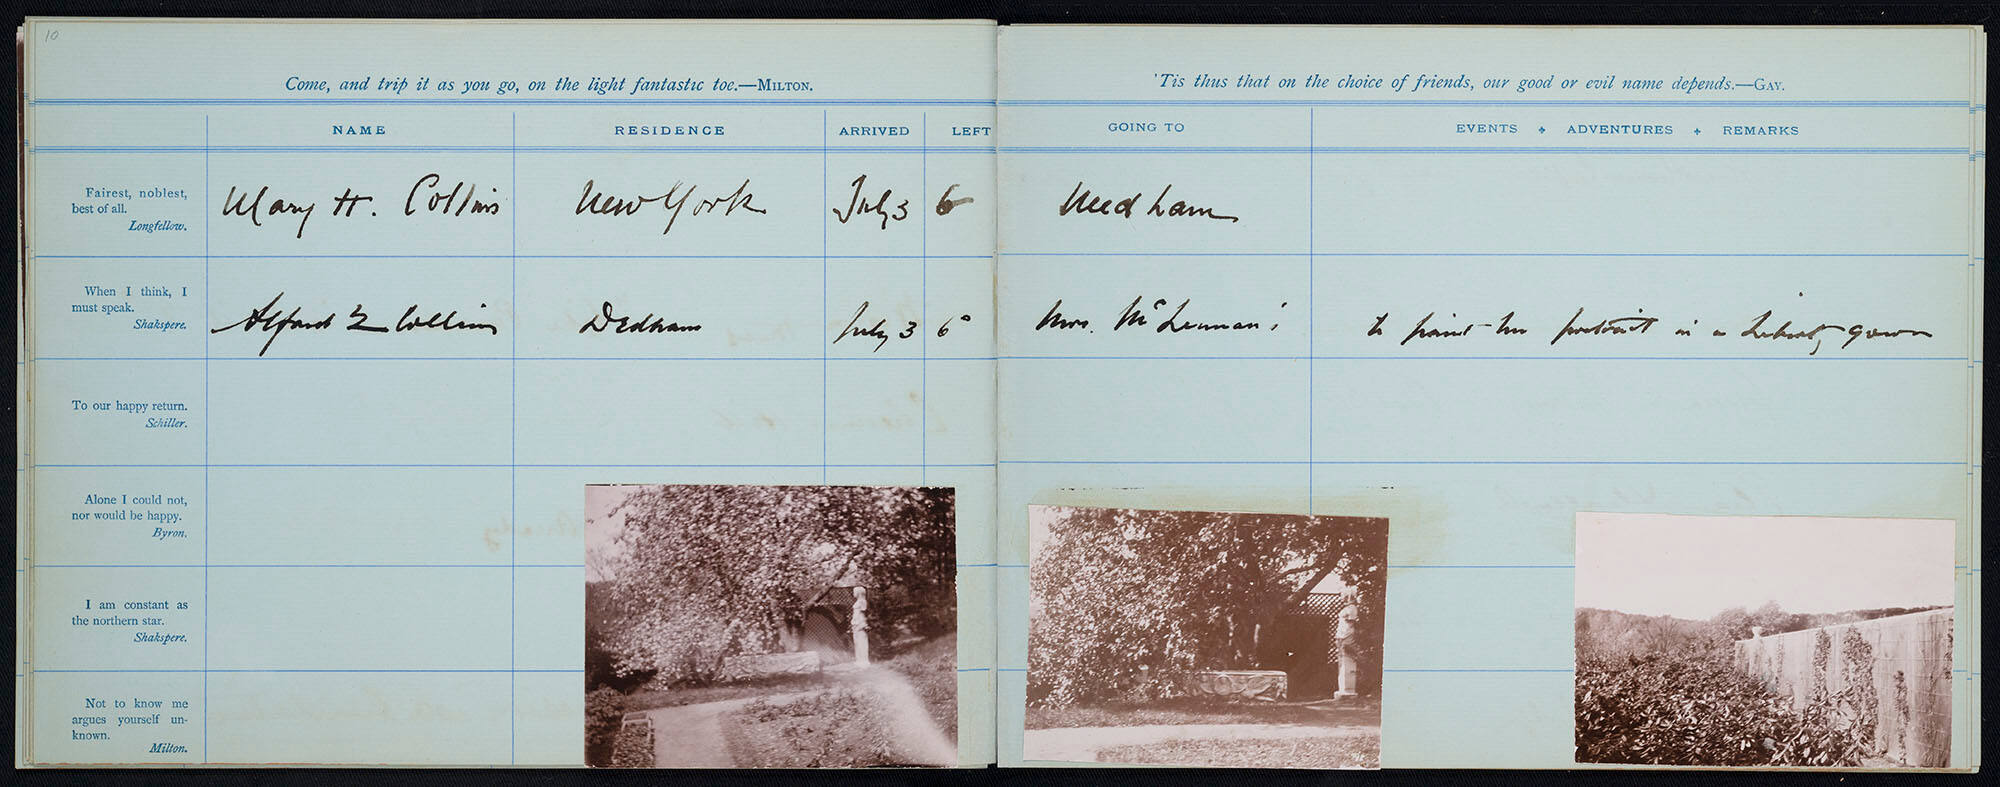 10
Come, and trip it as you go, on the light fantastic toe.—MILTON.
'Tis thus that on the choice of friends, our good or evil name depends.—GAY.
NAME RESIDENCE ARRIVED LEFT GOING TO EVENTS ✦ ADVENTURES ✦ REMARKS
Fairest, noblest,
best of all.
Longfellow.
Mary H. Collins New York July 3 6 Needham
When I think, I
must speak.
Shakspere.
Alfred Q Collins Dedham July 3 6 Mrs. McLennan's to paint her portrait in a Liberty gown
To our happy return.
Schiller.
Alone I could not,
nor would be happy.
Byron.
I am constant as
the northern star.
Shakspere.
Not to know me
argues yourself un-
known.
Milton.